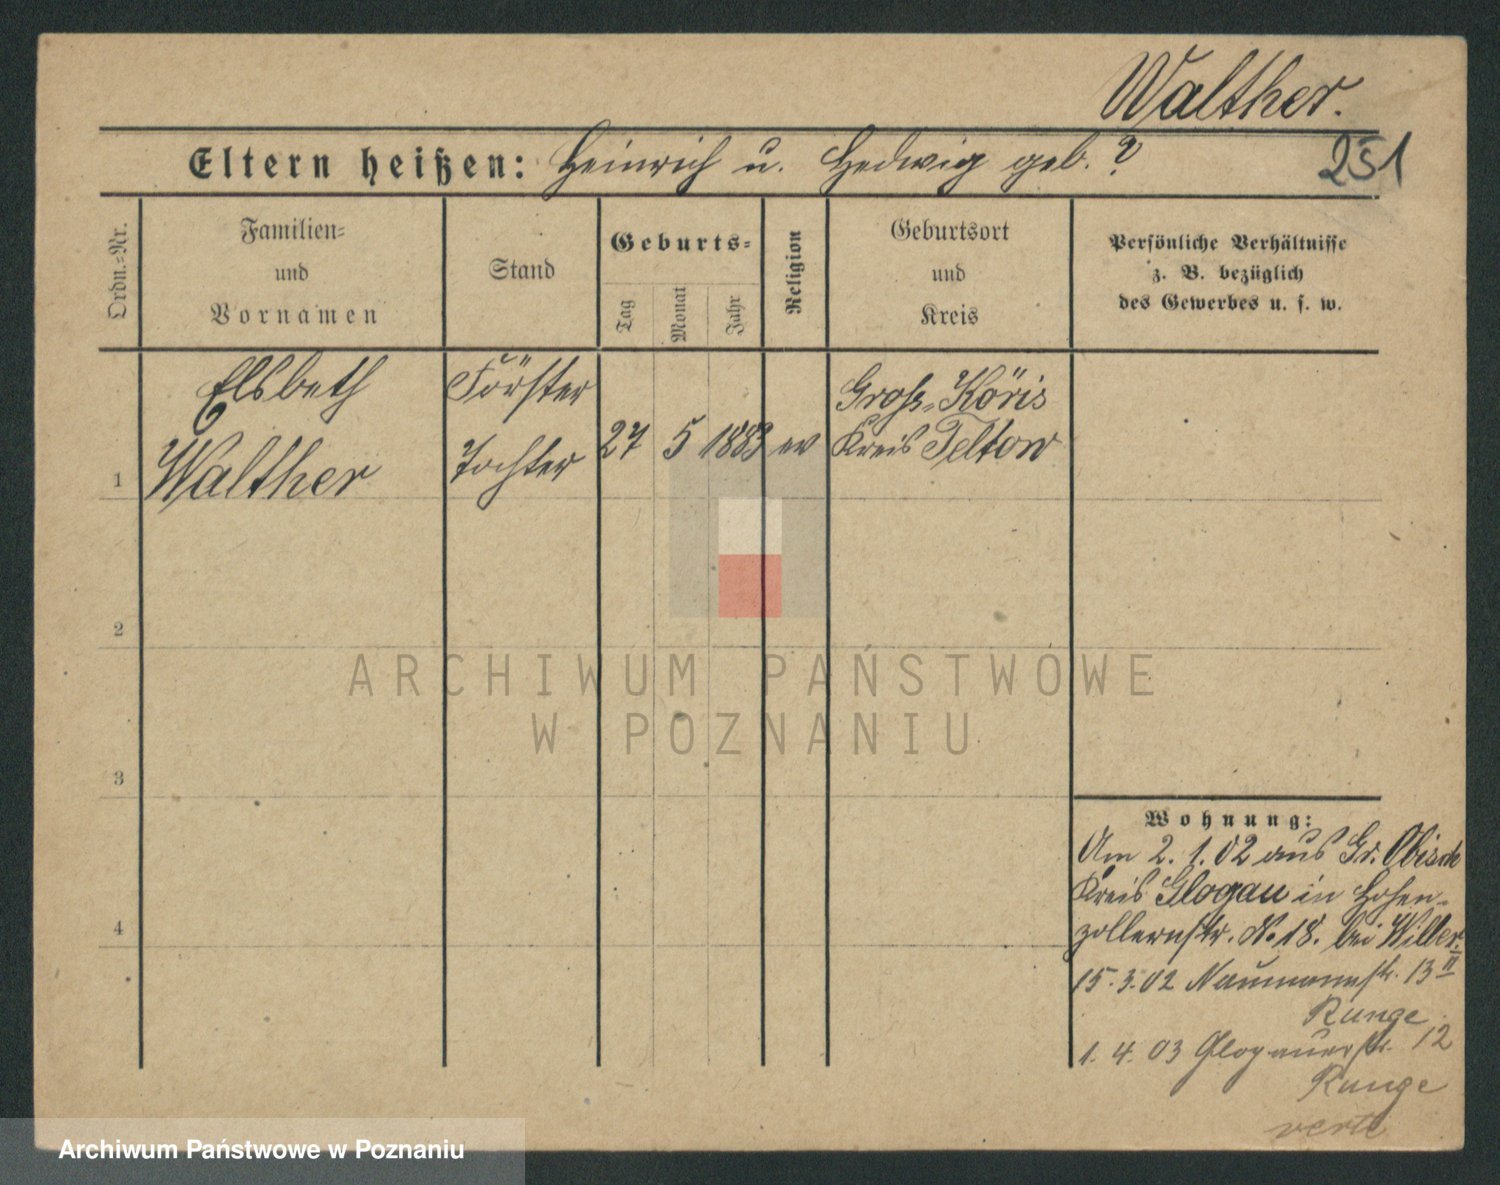 Walther.
Eltern heißen: Heinrich u. Hedwig geb. ?
251
Ordn.=Nr.
Familien=
und
Vornamen
Stand
Geburts=
Tag
Monat
Jahr
Religion
Geburtsort
und
Kreis
Persönliche Verhältnisse
z. B. bezüglich
des Gewerbes u. s. w.
1
Elsbeth
Walther
Förster
Tochter
27 5 1883 ev
Gross-Köris
Kreis Teltow
2
3
4
Wohnung:
Am 2.1.02 aus Gr. Obisch
Kreis Glogau in Hohen-
zollernstr. No 18. bei Willer.
15.3.02 Naumannstr. 13 II
Runge
1. 4. 03 Glogauerstr. 12
Runge
verte
ARCHIWUM PAŃSTWOWE
W POZNANIU
Archiwum Państwowe w Poznaniu